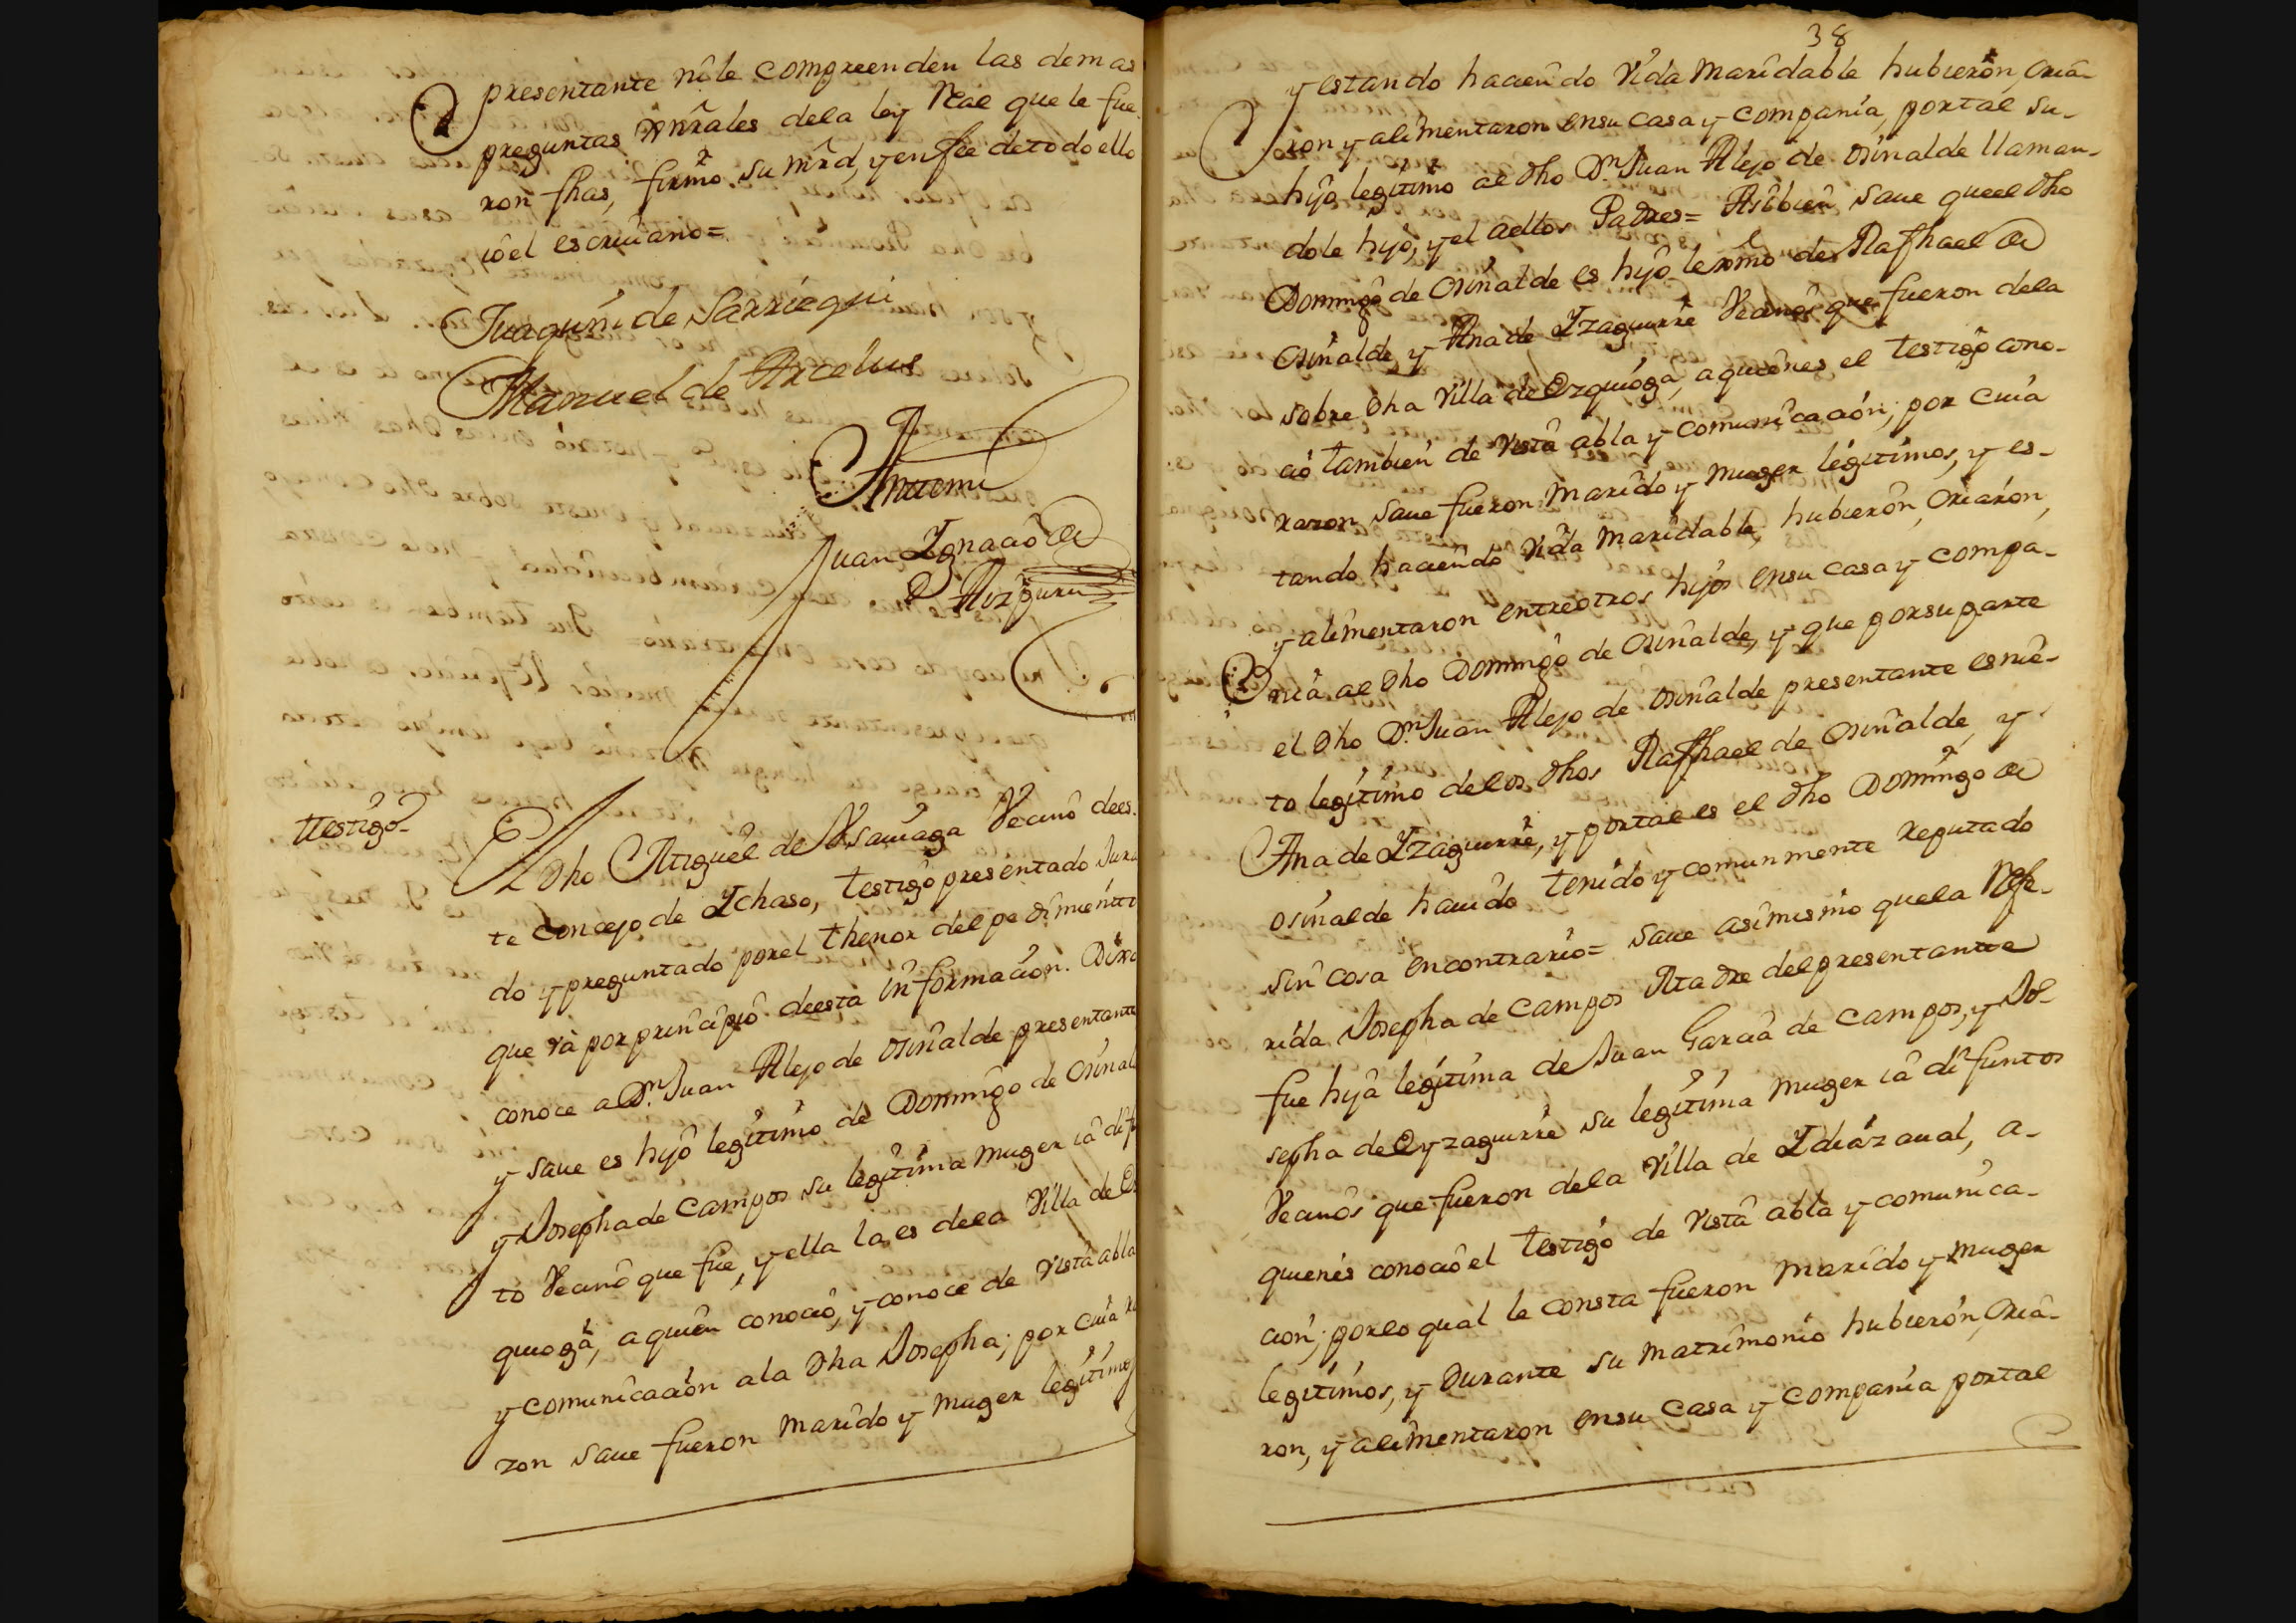 presentante ni le compreenden las demas
preguntas gnrales dela ley Real que le fue
ron fhas, firmo su mrd, y en fee de todo ello
io el escriuano=
Juaquin de Sarriegui
Manuel de Arcelus
Antemi
Juan Ignacio de
Aizpuru
testigo
El dho Miguel de Ysauiaga Vecino dees
te concejo de Ychaso, testigo presentado Jura
do y preguntado por el thenor del pedimiento
que va por principio deesta informacion. Dixo
conoce a Dn. Juan Alejo de Osinalde presentante
y saue es hijo legitimo de Domingo de Osinal
y Josepha de Campos su legitima muger ia dif
to Vecino que fue, y ella la es dela Villa de Ez
quioga, a quien conocio, y conoce de vista abla
y comunicacion ala dha Josepha; por cuia ra
zon saue fueron marido y muger legitimos
38
y estando haciendo vida maridable hubieron, cria-
ron y alimentaron en su casa y compania, por tal su-
hijo legitimo al dho Dn Juan Alejo de Osinalde llaman-
dole hijo, y el aellos Padres= Asibien saue que el dho
Domingo de Osinalde es hijo lexmo de Raphael de
Osinalde, y Ana de Yzaguirre Vecinos que fueron dela
sobre dha Villa de Ezquioga, a quienes el testigo cono-
cio tambien de vista abla y comunicacion; por cuia
razon saue fueron marido y muger legitimos, y es-
tando haciendo vida maridable, hubieron, criaron,
y alimentaron entre otros hijos en su casa y compa-
nia al dho Domingo de Osinalde, y que por su parte
el dho Dn Juan Alejo de Osinalde presentante es nie-
to legitimo delos dhos Raphael de Osinalde, y
Ana de Yzaguirre, y por tal es el dho Domingo de
Osinalde hauido tenido y comunmente reputado
sin cosa en contrario= saue asimismo que la Refe-
rida Josepha de Campos Madre del presentante
fue hija legitima de Juan Garcia de Campos, y Jo-
sepha de Eyzaguirre su legitima muger ia difuntos
Vecinos que fueron dela Villa de Ydiazaual, a-
quienes conocio el testigo de vista abla y comunica-
cion; por lo qual le consta fueron marido y muger
legitimos, y durante su matrimonio hubieron, cria-
ron, y alimentaron en su casa y compania por tal